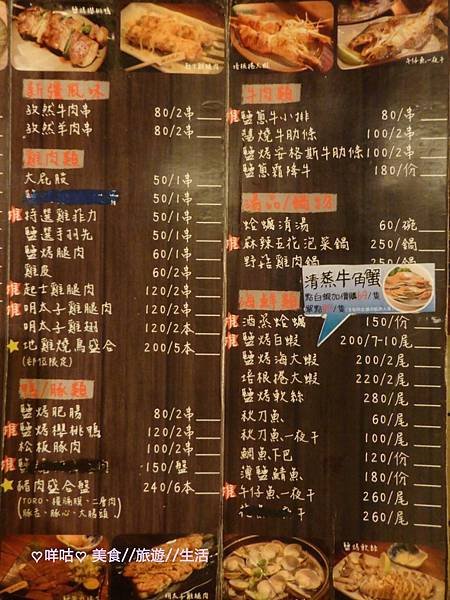 鹽烤櫻桃鴨
起士雞腿肉
培根捲大蝦
午仔魚一夜干
新疆風味
孜然牛肉串 80/2串
孜然羊肉串 80/2串
雞肉類
大屁股 50/1串
鹽 50/1串
推 特選雞菲力 50/1串
鹽選手羽先 50/1串
鹽烤腿肉 60/1串
雞皮 60/2串
推 起士雞腿肉 120/2串
推 明太子雞腿肉 120/2串
明太子雞翅 120/2串
池雞燒鳥盛合 200/5本
(部位限定)
鴨/豚類
鹽烤肥腸 80/2串
推 鹽烤櫻桃鴨 120/2串
松板豚肉 100/2串
推 鹽 肉 150/盤
豬肉盛合盤 240/6本
豚舌、豚心、大腸頭.)
牛肉類
推 鹽蔥牛小排 80/串
醬燒牛肋條 100/2串
鹽烤安格斯牛肋條 100/2串
鹽蔥霜降牛 180/份
湯品/鍋物
蛤蠣清湯 60/碗
推 麻辣豆花泡菜鍋 250/鍋
野菇雞肉鍋 260/鍋
清蒸牛角蟹
點白蝦加價購69/隻
海鮮類
推 酒蒸蛤蠣 150/份
推 鹽烤白蝦 200/7-10尾
鹽烤海大蝦 200/2尾
培根捲大蝦 220/2尾
鹽烤軟絲 280/尾
秋刀魚 60/尾
秋刀魚一夜干 100/尾
鯛魚下巴 120/份
薄鹽鯖魚 180/份
推 午仔魚一夜干 260/尾
干 260/尾
明太子雞腿肉
鹽烤軟絲
♡咩咕♡ 美食//旅遊//生活